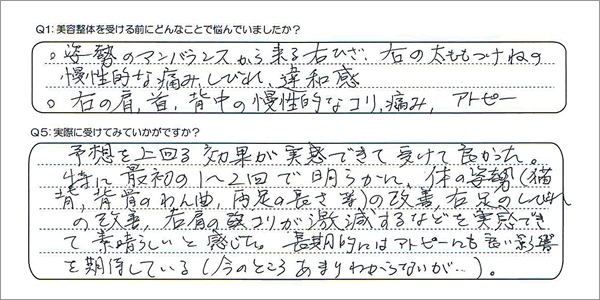 Q1: 美容整体を受ける前にどんなことで悩んでいましたか？
○ 姿勢のアンバランスから来る右ひざ、右の太ももつけねの
慢性的な痛み、しびれ、違和感
○ 右の肩、首、背中の慢性的なコリ、痛み、アトピー
Q5: 実際に受けてみていかがですか？
予想を上回る効果が実感できて受けて良かった。
特に最初の1〜2回で明らかに、体の姿勢(猫
背、背骨のわん曲、両足の長さ等)の改善、右足のしびれ
の改善、右肩の コリが激減するなどを実感でき
て素晴らしいと感じた。長期的にはアトピーにも良い影響
を期待している(今のところあまりわからないが…)。